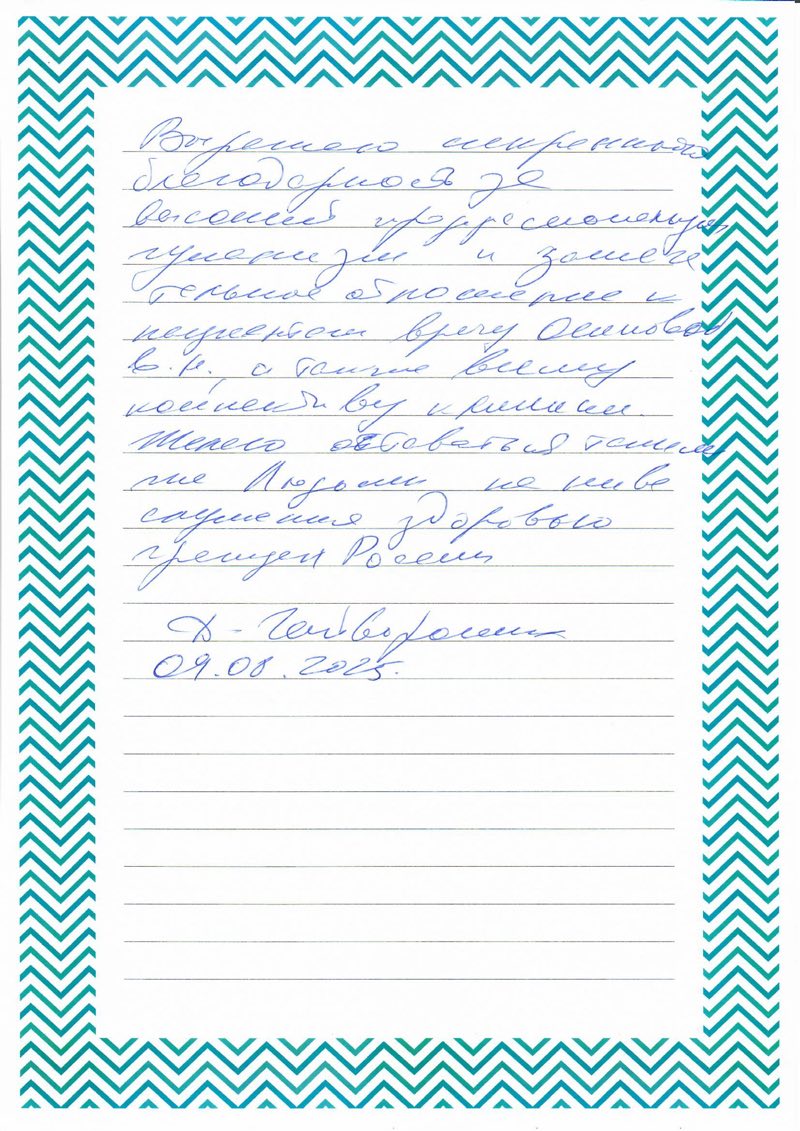 Выражаю искреннюю
благодарность за
высокий профессионализм,
гуманизм и замеча
тельное отношение к
пациентам врачу Осиповой
В.Н., а также всему
коллективу клиники.
Желаю оставаться такими
же Людьми на ниве
служения здоровью
граждан России
09.08.2025.